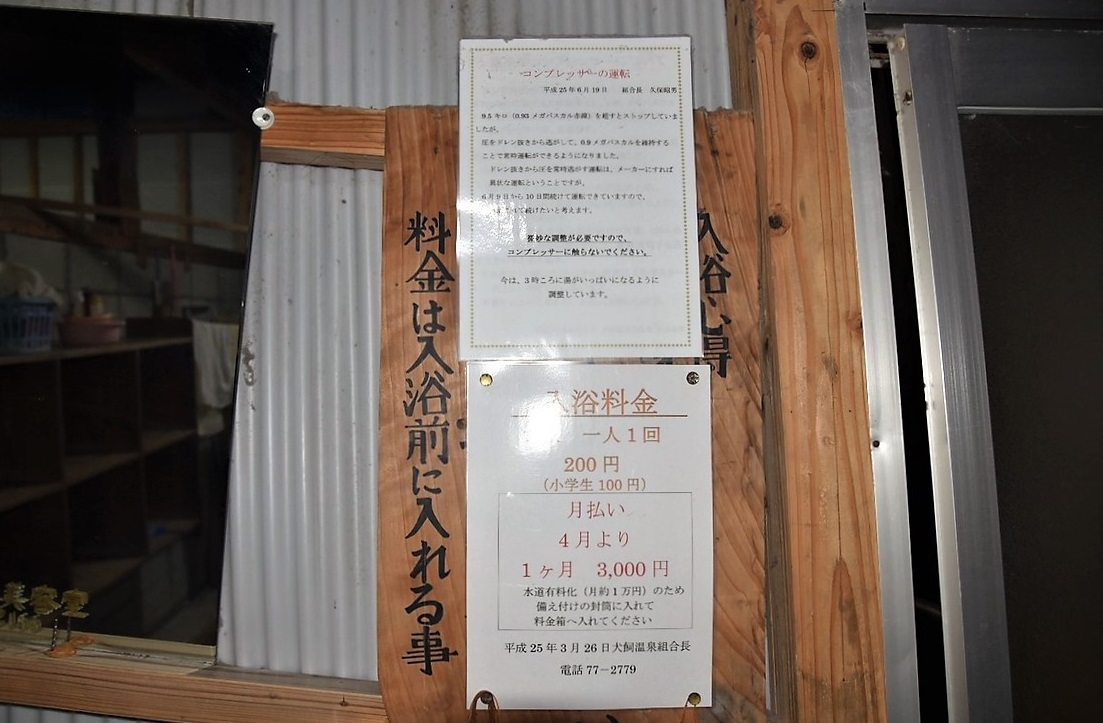 コンプレッサーの運転
平成25年6月19日　組合長　久保昭男
9.5キロ（0.95メガパスカル赤線）を超すとストップしていま
したが、
圧をドレン抜きから逃がして、0.9メガパスカルを維持する
ことで常時運転ができるようになりました。
ドレン抜きから圧を常時逃がす運転は、メーカーにすれば
異状な運転ということですが、
6月9日から10日間続けて運転できていますので、
続けたいと考えます。
微妙な調整が必要ですので、
コンプレッサーに触らないでください。
今は、3時ころに湯がいっぱいになるように
調整しています。
入浴心得
料金は入浴前に入れる事
入浴料金
一人1回
200円
（小学生100円）
月払い
4月より
1ヶ月　3,000円
水道有料化（月約1万円）のため
備え付けの封筒に入れて
料金箱へ入れてください
平成25年3月26日犬飼温泉組合長
電話77－2779